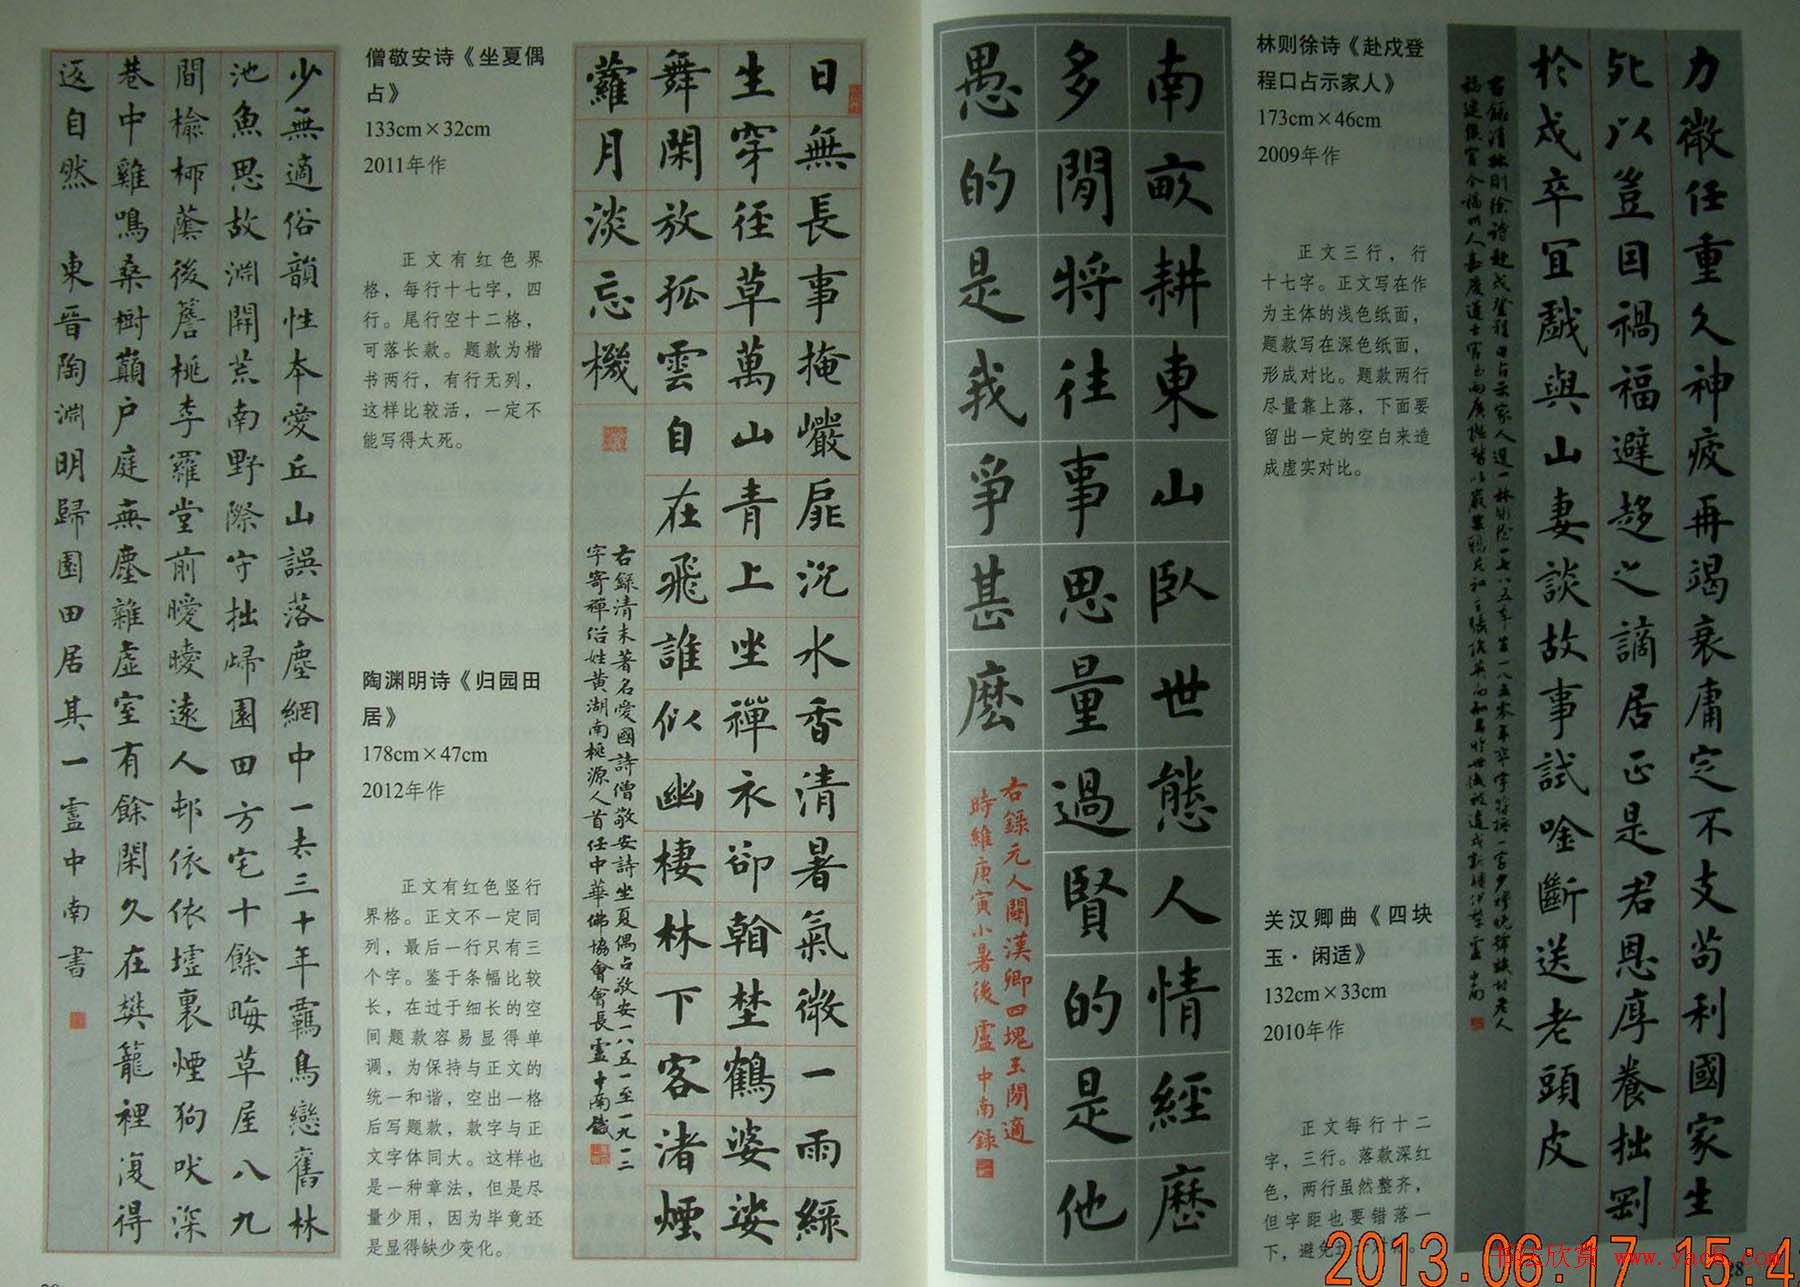 力微任重久神疲再竭衰庸定不支茍利國家生
死以豈因禍福避趨之謫居正是君恩厚養拙剛
於戍卒宜戲與山妻談故事試唫斷送老頭皮
右錄清林則徐詩赴戍登程口占示家人
林则徐诗《赴戍登
程口占示家人》
173cm×46cm
2009年作
正文三行，行
十七字。正文写在作
为主体的浅色纸面，
题款写在深色纸面，
形成对比。题款两行
尽量靠上落，下面要
留出一定的空白来造
成虚实对比。
关汉卿曲《四块
玉·闲适》
132cm×33cm
2010年作
正文每行十二
字，三行。落款深红
色，两行虽然整齐，
但字距也要错落一
下，避免
南畝耕東山臥世態人情經歷
多閒將往事思量過賢的是他
愚的是我爭甚麼
右錄元人關漢卿四塊玉閒適
時維庚寅小暑後盧中南錄
日無長事掩巖扉沉水香清暑氣微一雨綠
生穿徑草萬山青上坐禪衣卻翰埜鶴婆娑
舞閑放孤雲自在飛誰似幽棲林下客渚煙
蘿月淡忘機
右錄清末著名愛國詩僧敬安詩坐夏偶占敬安一八五一至一九一二
字寄禪俗姓黃湖南桃源人首任中華佛協會會長盧中南識
僧敬安诗《坐夏偶
占》
133cm×32cm
2011年作
正文有红色界
格，每行十七字，四
行。尾行空十二格，
可落长款。题款为楷
书两行，有行无列，
这样比较活，一定不
能写得太死。
陶渊明诗《归园田
居》
178cm×47cm
2012年作
正文有红色竖行
界格。正文不一定同
列，最后一行只有三
个字。鉴于条幅比较
长，在过于细长的空
间题款容易显得单
调，为保持与正文的
统一和谐，空出一格
后写题款，款字与正
文字体同大。这样也
是一种章法，但是尽
量少用，因为毕竟还
是显得缺少变化。
少無適俗韻性本愛丘山誤落塵網中一去三十年羈鳥戀舊林
池魚思故淵開荒南野際守拙歸園田方宅十餘畮草屋八九
間榆柳蔭後簷桃李羅堂前曖曖遠人邨依依墟裏煙狗吠深
巷中雞鳴桑樹顛户庭無塵雜虛室有餘閑久在樊籠裡復得
返自然 東晉陶淵明歸園田居其一盧中南書
2013.06.17 15:4
书法欣赏 www.yac8.com